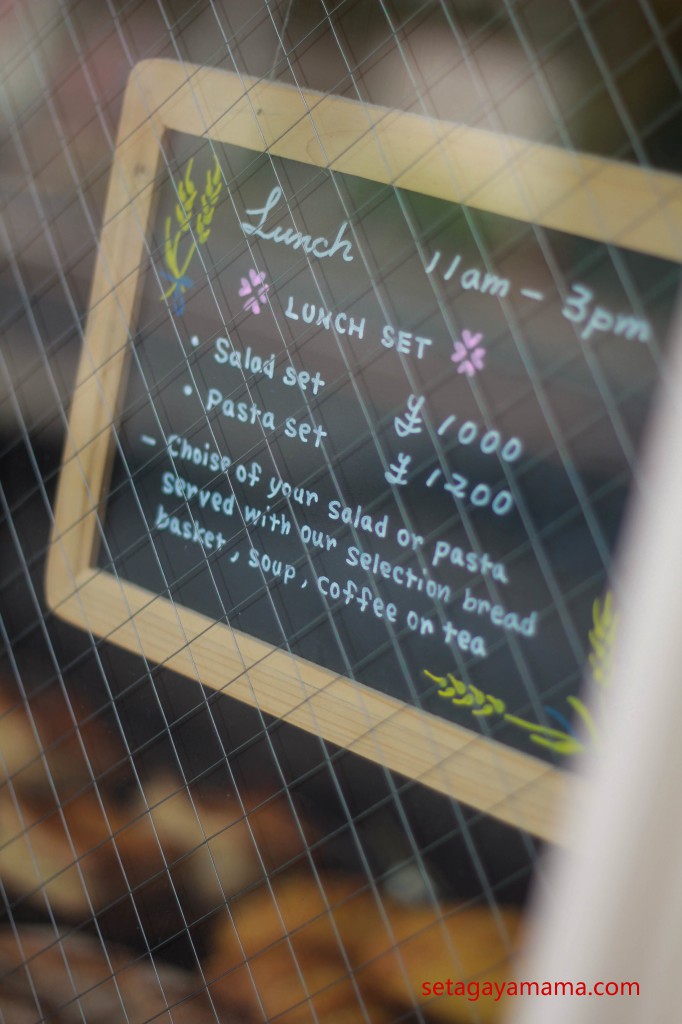 Lunch 11am - 3pm
LUNCH SET
• Salad set ¥ 1000
• Pasta set ¥ 1200
- Choise of your salad or pasta
served with our selection bread
basket, soup, coffee or tea
setagayamama.com